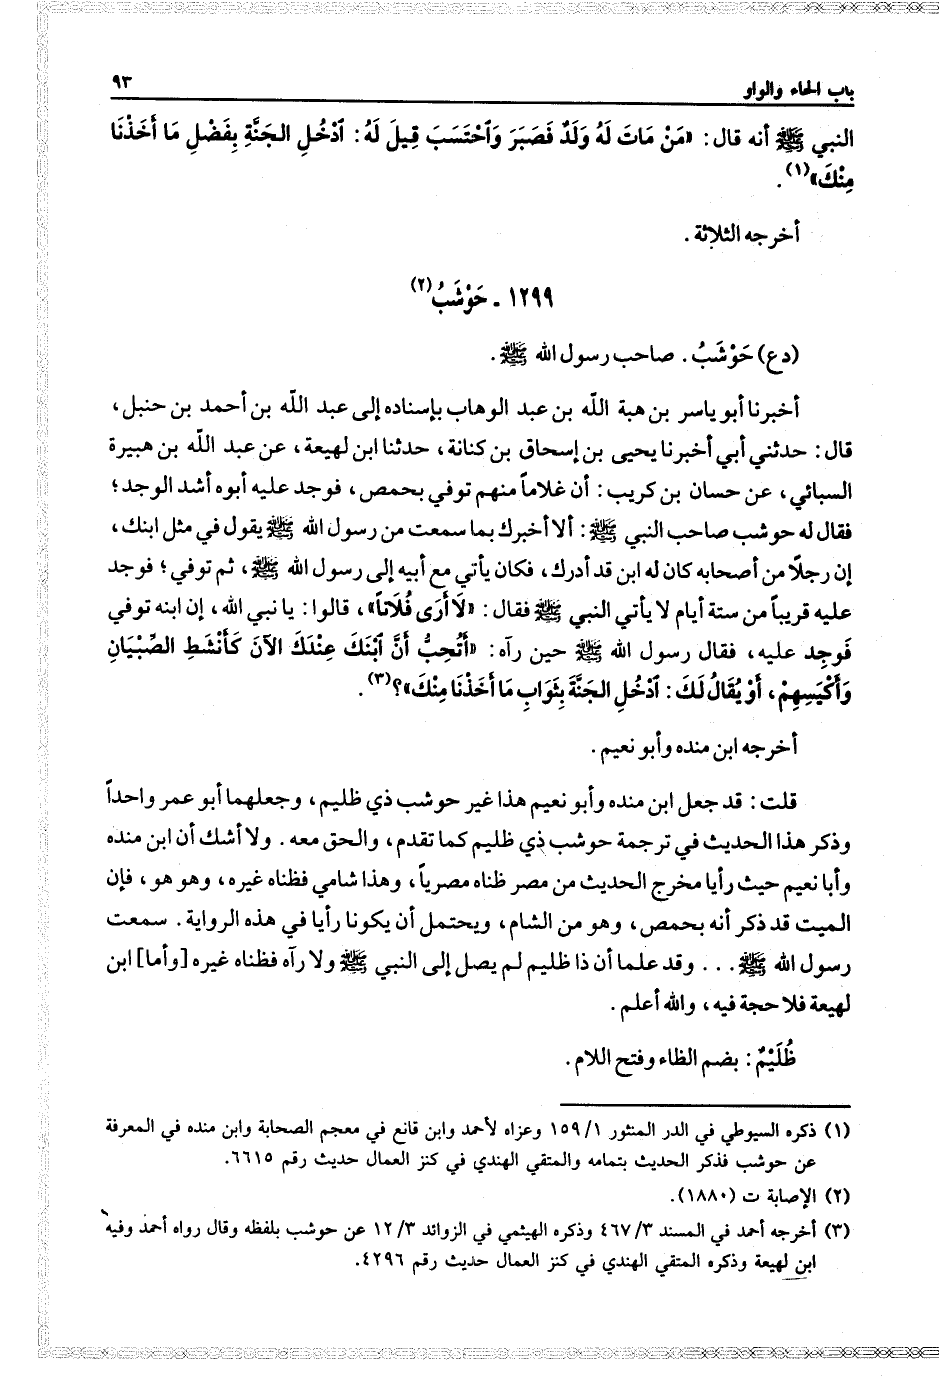 باب الحاء والواو ٩٣
النبي ﷺ أنه قال: «مَنْ مَاتَ لَهُ وَلَدٌ فَصَبَرَ وَٱحْتَسَبَ قِيلَ لَهُ: ٱدْخُلِ الجَنَّةِ بِفَضْلِ مَا أَخَذْنَا
مِنْكَ»(١).
أخرجه الثلاثة.
١٢٩٩ ـ حَوْشَبُ(٢)
(دع) حَوْشَبُ. صاحب رسول الله ﷺ.
أخبرنا أبو ياسر بن هبة اللّه بن عبد الوهاب بإسناده إلى عبد اللّه بن أحمد بن حنبل،
قال: حدثني أبي أخبرنا يحيى بن إسحاق بن كنانة، حدثنا ابن لهيعة، عن عبد اللّه بن هبيرة
السبائي، عن حسان بن كريب: أن غلاماً منهم توفي بحمص، فوجد عليه أبوه أشد الوجد؛
فقال له حوشب صاحب النبي ﷺ: ألا أخبرك بما سمعت من رسول الله ﷺ يقول في مثل ابنك،
إن رجلًا من أصحابه كان له ابن قد أدرك، فكان يأتي مع أبيه إلى رسول الله ﷺ، ثم توفي؛ فوجد
عليه قريباً من ستة أيام لا يأتي النبي ﷺ فقال: «لَا أَرَى فُلَاناً»، قالوا: يا نبي الله، إن ابنه توفي
فَوجِد عليه، فقال رسول الله ﷺ حين رآه: «أَتُحِبُّ أَنَّ ٱبْنَكَ عِنْدَكَ الآنَ كَأَنْشَطِ الصِّبْيَانِ
وَأَكْيَسِهِمْ، أَوْ يُقَالُ لَكَ: ٱدْخُلِ الجَنَّةَ بِثَوَابِ مَا أَخَذْنَا مِنْكَ»؟(٣).
أخرجه ابن منده وأبو نعيم.
قلت: قد جعل ابن منده وأبو نعيم هذا غير حوشب ذي ظليم، وجعلهما أبو عمر واحداً
وذكر هذا الحديث في ترجمة حوشب ذي ظليم كما تقدم، والحق معه. ولا أشك أن ابن منده
وأبا نعيم حيث رأيا مخرج الحديث من مصر ظناه مصرياً، وهذا شامي فظناه غيره، وهو هو، فإن
الميت قد ذكر أنه بحمص، وهو من الشام، ويحتمل أن يكونا رأيا في هذه الرواية. سمعت
رسول الله ﷺ... وقد علما أن ذا ظليم لم يصل إلى النبي ﷺ ولا رآه فظناه غيره [وأما] ابن
لهيعة فلا حجة فيه، والله أعلم.
ظُلَيْمٌ: بضم الظاء وفتح اللام.
(١) ذكره السيوطي في الدر المنثور ١/ ١٥٩ وعزاه لأحمد وابن قانع في معجم الصحابة وابن منده في المعرفة
عن حوشب فذكر الحديث بتمامه والمتقي الهندي في كنز العمال حديث رقم ٦٦١٥.
(٢) الإصابة ت (١٨٨٠).
(٣) أخرجه أحمد في المسند ٣/ ٤٦٧ وذكره الهيثمي في الزوائد ٣/ ١٢ عن حوشب بلفظه وقال رواه أحمد وفيه
ابن لهيعة وذكره المتقي الهندي في كنز العمال حديث رقم ٤٢٩٦.